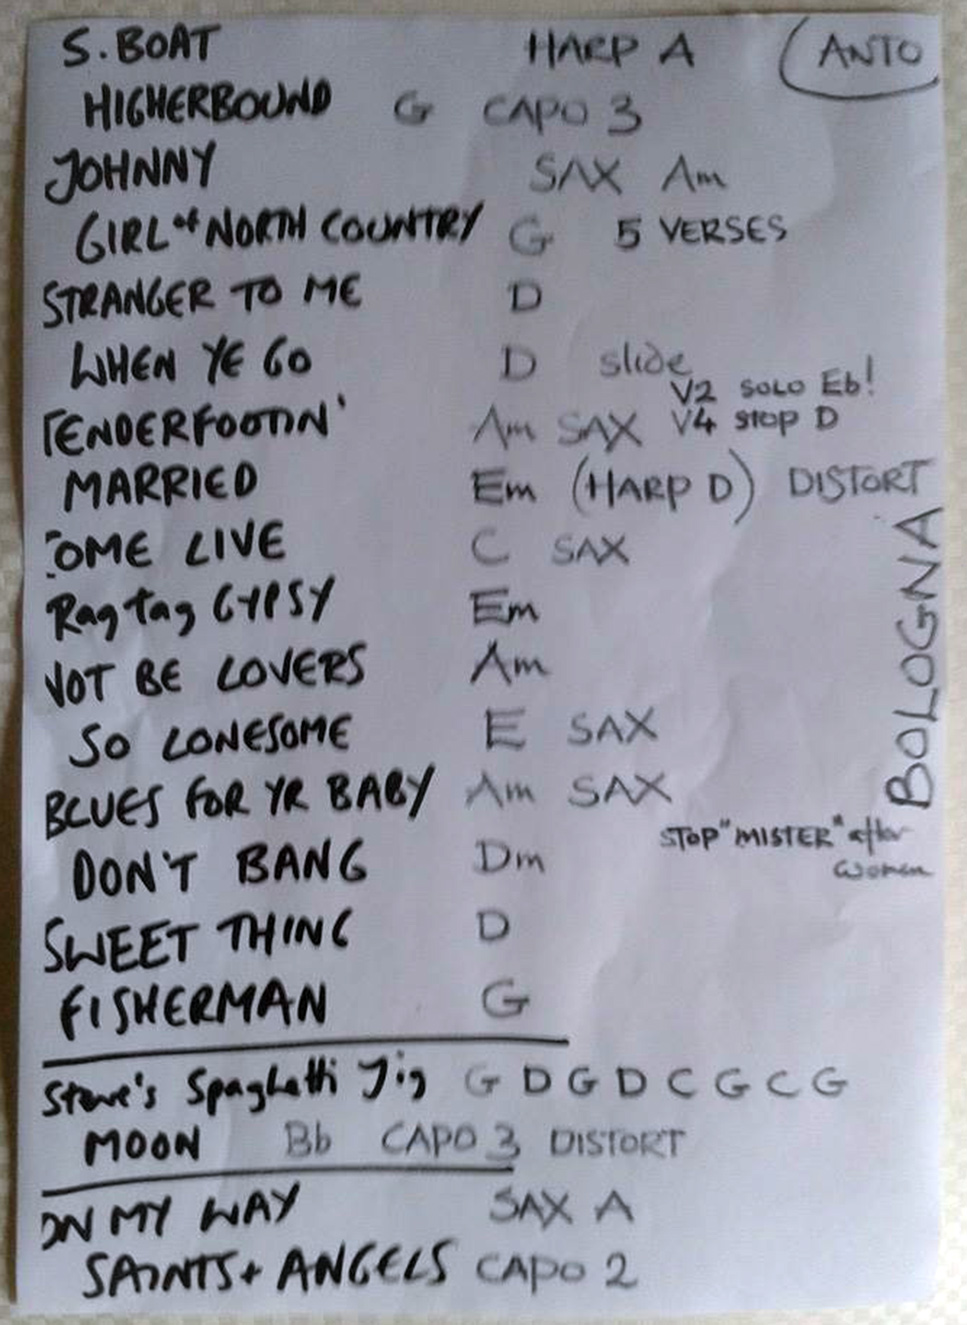 S. BOAT HARP A ANTO
HIGHERBOUND G CAPO 3
JOHNNY SAX Am
GIRL of NORTH COUNTRY G 5 VERSES
STRANGER TO ME D
WHEN YE GO D slide
V2 SOLO Eb!
TENDERFOOTIN' Am SAX V4 STOP D
MARRIED Em (HARP D) DISTORT
OME LIVE C SAX
Rag tag GYPSY Em
NOT BE LOVERS Am
SO LONESOME E SAX
BLUES FOR YR BABY Am SAX
BOLOGNA
STOP "MISTER" after
women
DON'T BANG Dm
SWEET THING D
FISHERMAN G
Steve's Spaghetti Jig G D G D C G C G
MOON Bb CAPO 3 DISTORT
ON MY WAY SAX A
SAINTS + ANGELS CAPO 2